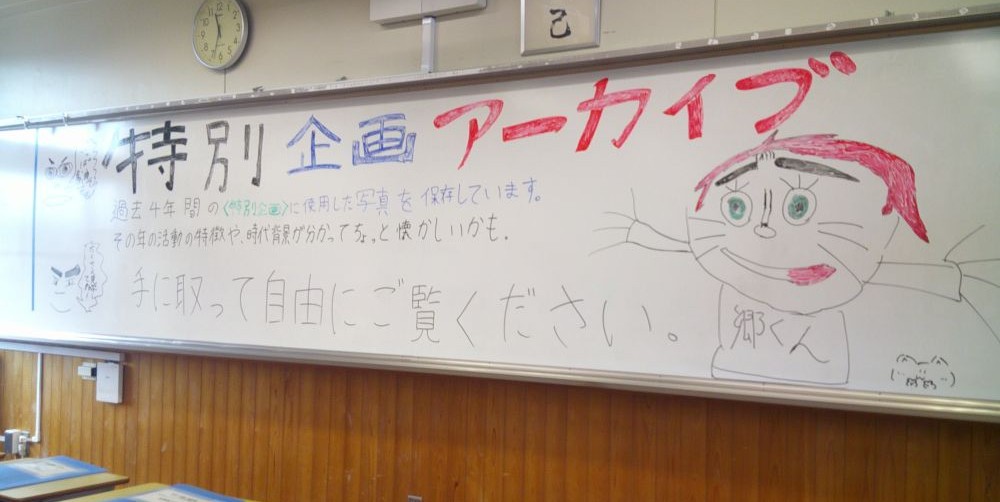 己
特別企画アーカイブ
過去4年間の〈特別企画〉に使用した写真を保存しています。
その年の活動の特徴や、時代背景が分かってちょっと懐かしいかも。
手に取って自由にご覧ください。
郷くん